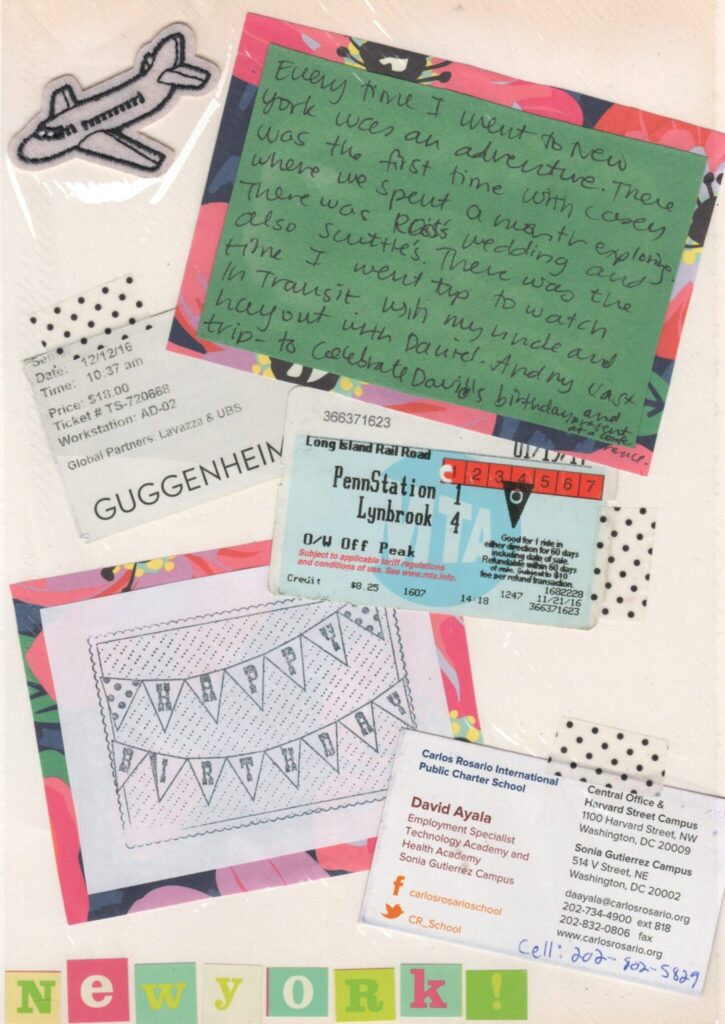 Every time I went to New
York was an adventure. There
was the first time with Casey
where we spent a month exploring.
There was wedding and
also Scuttle's. There was the
time I went up to watch
In Transit with my uncle and
hayout with Daniel. And my last
trip - to celebrate David's birthday and
present
at a confe
rence.
Date: 12/12/16
Time: 10:37 am
Price: $18.00
Ticket # TS-720668
Workstation: AD-02
Global Partners: Lavazza & UBS
GUGGENHEIM
366371623
Long Island Rail Road
1 2 3 4 5 6 7
PennStation 1
Lynbrook 4
MTA
O/W Off Peak
Subject to applicable tariff regulations
and conditions of use. See www.mta.info.
Good for 1 ride in
either direction for 60 days
including date of sale.
Refundable within 60 days
of sale. Subject to $10
fee per refund transaction.
Credit $8.25 1607 14:18 1247 1682228
11/21/16
366371623
HAPPY
BIRTHDAY
Carlos Rosario International
Public Charter School
David Ayala
Employment Specialist
Technology Academy and
Health Academy
Sonia Gutierrez Campus
f carlosrosarioschool
CR_School
Central Office &
Harvard Street Campus
1100 Harvard Street, NW
Washington, DC 20009
Sonia Gutierrez Campus
514 V Street, NE
Washington, DC 20002
daayala@carlosrosario.org
202-734-4900 ext 818
202-832-0806 fax
www.carlosrosario.org
Cell: 202-802-5829
New york!